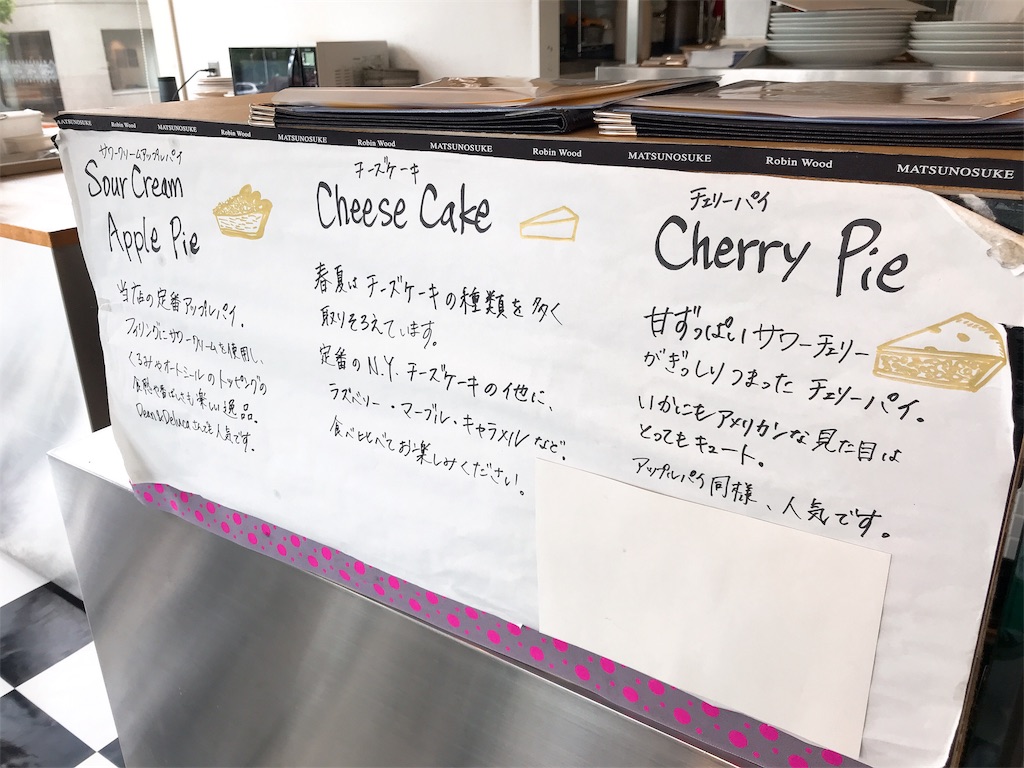 MATSUNOSUKE Robin Wood MATSUNOSUKE Robin Wood MATSUNOSUKE Robin Wood MATSUNOSUKE Robin Wood MATSUNOSUKE Robin Wood MATSUNOSUKE
サワークリームアップルパイ
Sour Cream
Apple Pie
当店の定番アップルパイ。
フィリングにサワークリームを使用し、
くるみやオートミールのトッピングの
食感や香ばしさも楽しい逸品。
Dean&Delucaさんでも人気です。
チーズケーキ
Cheese Cake
春夏はチーズケーキの種類を多く
取りそろえています。
定番のN.Y.チーズケーキの他に、
ラズベリー・マーブル・キャラメルなど。
食べ比べてお楽しみください。
チェリーパイ
Cherry Pie
甘ずっぱいサワーチェリー
がぎっしりつまったチェリーパイ。
いかにもアメリカンな見た目は
とってもキュート。
アップルパイ同様、人気です。